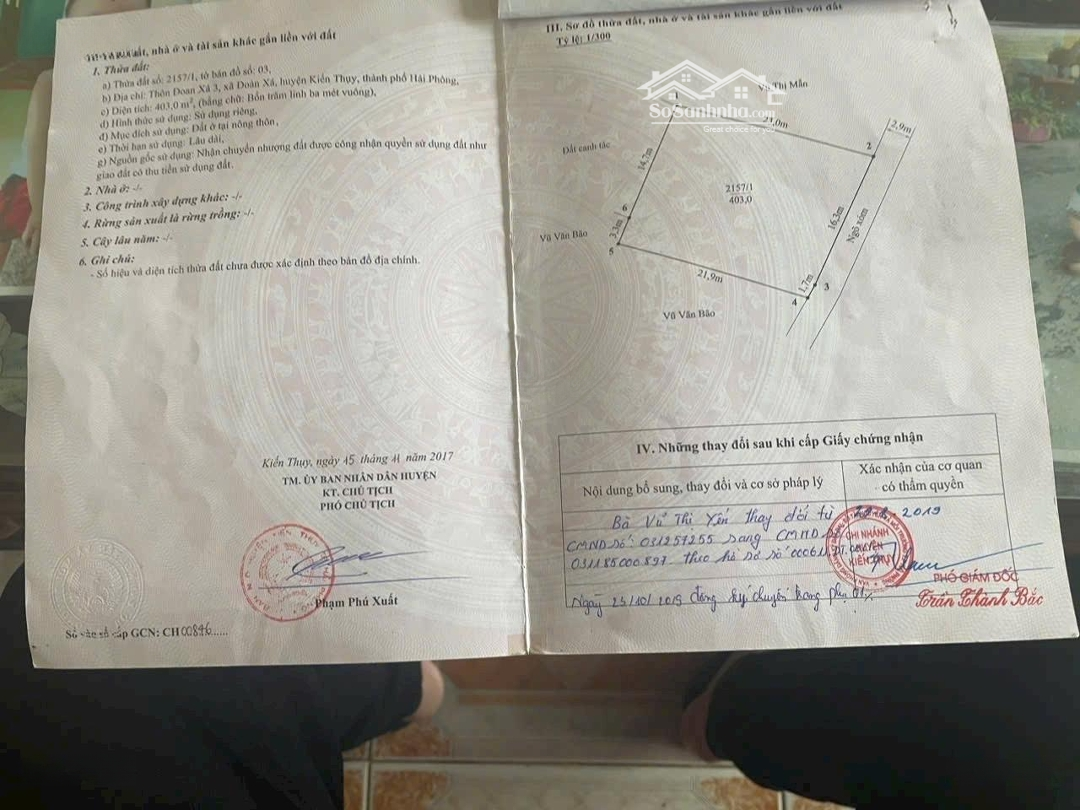 đất, nhà ở và tài sản khác gắn liền với đất
1. Thửa đất:
a) Thửa đất số: 2157/1, tờ bản đồ số: 03,
b) Địa chỉ: Thôn Đoan Xá 3, xã Đoàn Xá, huyện Kiến Thụy, thành phố Hải Phòng,
c) Diện tích: 403,0 m², (bằng chữ: Bốn trăm linh ba mét vuông),
d) Hình thức sử dụng: Sử dụng riêng,
đ) Mục đích sử dụng: Đất ở tại nông thôn,
e) Thời hạn sử dụng: Lâu dài,
g) Nguồn gốc sử dụng: Nhận chuyển nhượng đất được công nhận quyền sử dụng đất như
giao đất có thu tiền sử dụng đất.
2. Nhà ở: -/-
3. Công trình xây dựng khác: -/-
4. Rừng sản xuất là rừng trồng: -/-
5. Cây lâu năm: -/-
6. Ghi chú:
- Số hiệu và diện tích thửa đất chưa được xác định theo bản đồ địa chính.
Kiến Thụy, ngày 15 tháng 11 năm 2017
TM. ỦY BAN NHÂN DÂN HUYỆN
KT. CHỦ TỊCH
PHÓ CHỦ TỊCH
Phạm Phú Xuất
Số vào sổ cấp GCN: CH00846......
III. Sơ đồ thửa đất, nhà ở và tài sản khác gắn liền với đất
Tỷ lệ: 1/300
SoSanhnha.com
Great choice for you
Vũ Thị Mẫn
1
21,0m
2,9m
2
Đất canh tác
14,7m
2157/1
403,0
16,3m
Ngõ xóm
6
3,3m
Vũ Văn Bão
5
21,9m
1,7m
3
4
Vũ Văn Bão
IV. Những thay đổi sau khi cấp Giấy chứng nhận
Nội dung bổ sung, thay đổi và cơ sở pháp lý
Xác nhận của cơ quan
có thẩm quyền
Bà Vũ Thị Yến thay đổi từ
2019
CMND số: 031257255 sang CMND số
031185000897 theo hồ sơ số 000611
CHI NHÁNH
HUYỆN
KIẾN THỤY
PHÓ GIÁM ĐỐC
Trần Thành Bắc
Ngày 25/10/2019 đăng ký chuyển trang phụ 01